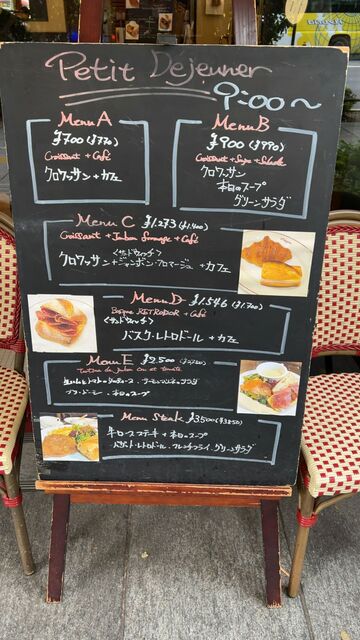 Petit Dejeuner
9:00~
Menu A
¥700 (¥770)
Croissant + Café
クロワッサン + カフェ
Menu B
¥900 (¥990)
Croissant + Soupe + Salade
クロワッサン
本日のスープ
グリーンサラダ
Menu C ¥1,273 (¥1,400)
Croissant + Jambon Fromage + Café
<サンドウィッチ>
クロワッサン+ジャンボン・フロマージュ + カフェ
Menu D ¥1,546 (¥1,700)
Basque RETRODOR + Café
<サンドウィッチ>
バスク・レトロドール + カフェ
Menu E ¥2,500
Tartine de Jambon cru et tomate
本日のスープ
Menu Steak ¥3500 (¥3850)
牛ロースステーキ + 本日のスープ
バゲット・レトロドール フレンチフライ グリーンサラダ